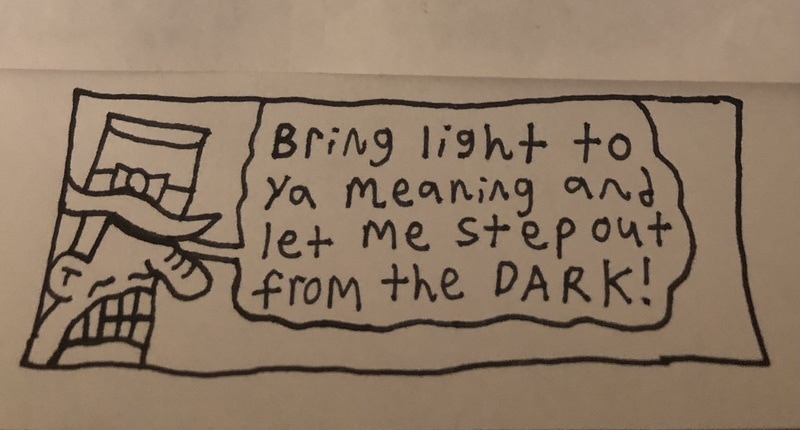 Bring light to
ya meaning and
let me step out
from the DARK!